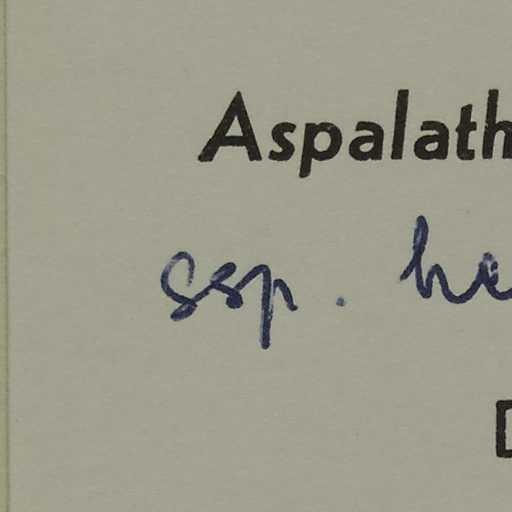 Aspalath
ssp. he
D